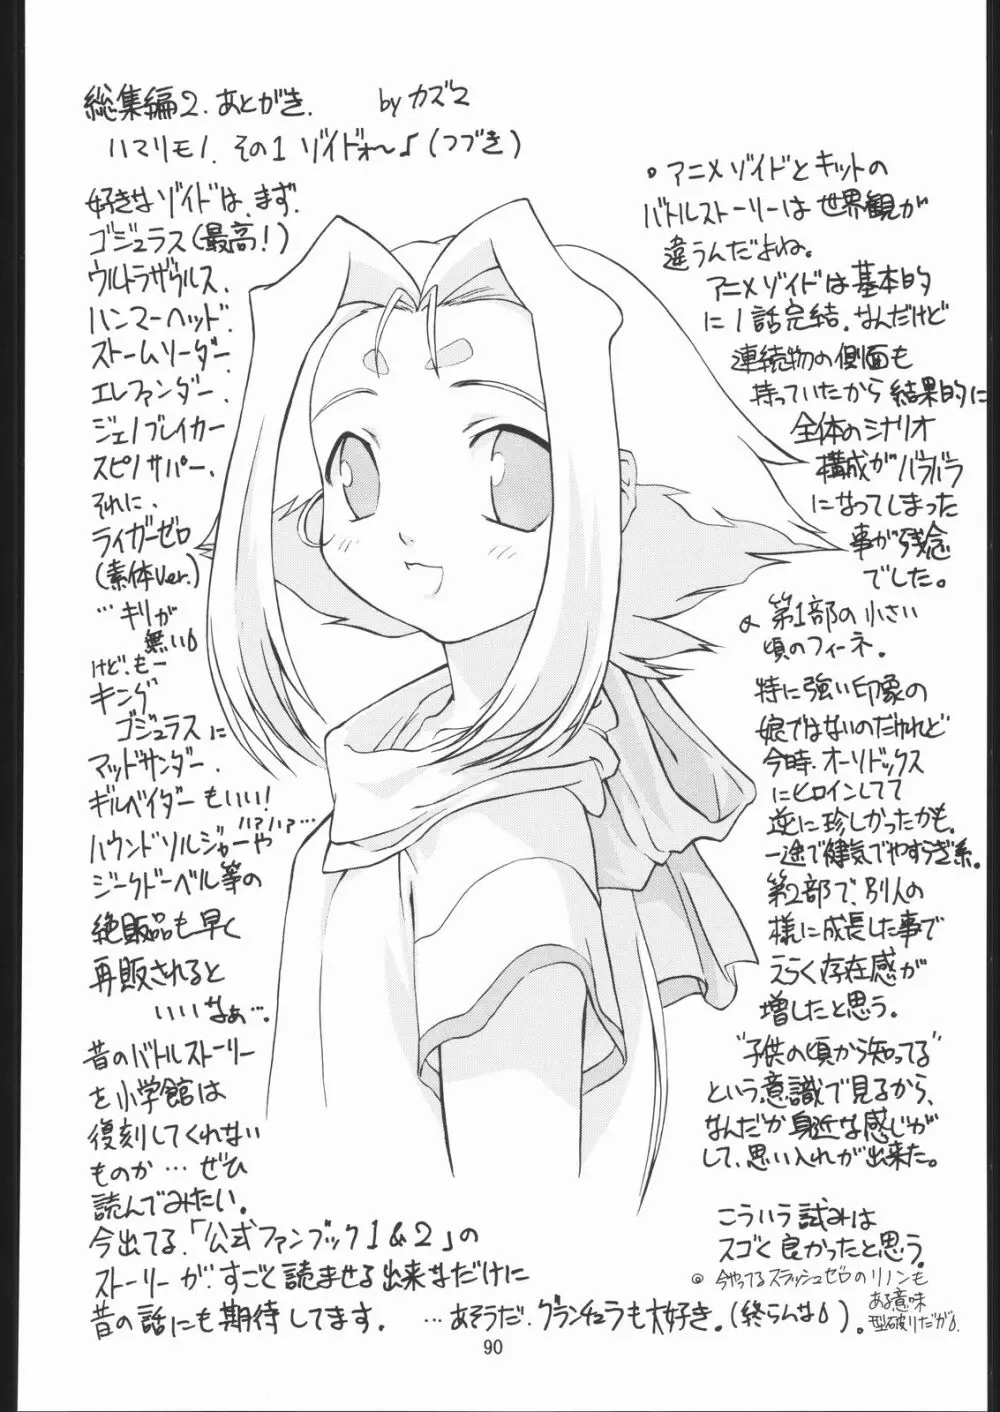 総集編2.あとがき. by カズマ
ハマリモノ.その1 ゾイドォ〜♪(つづき)
好きなゾイドは、まず、
ゴジュラス(最高!)
ウルトラザウルス、
ハンマーヘッド、
ストームソーダー、
エレファンダー、
ジェノブレイカー
スピノサパー、
それに、
ライガーゼロ
(素体Ver.)
…キリが
無い
けど、もー
キング
ゴジュラスに
マッドサンダー、
ギルベイダーもいい!
ハァハァ…
ハウンドソルジャーや
ジークドーベル等の
絶版品も早く
再販されると
いいなぁ…。
昔のバトルストーリー
を小学館は
復刻してくれない
ものか…ぜひ
読んでみたい。
今出てる、「公式ファンブック1&2」の
ストーリーが、すごく読ませる出来なだけに
昔の話にも期待してます。 …あそうだ、グランチュラも大好き。(終らんな)。
。アニメゾイドとキットの
バトルストーリーは世界観が
違うんだよね。
アニメゾイドは基本的
に1話完結、なんだけど
連続物の側面も
持っていたから結果的に
全体のシナリオ
構成がバラバラ
になってしまった
事が残念
でした。
第1部の小さい
頃のフィーネ。
特に強い印象の
娘ではないのだけれど
今時、オーソドックス
にヒロインしてて
逆に珍しかったかも。
一途で健気でやすらぎ系。
第2部で、別人の
様に成長した事で
えらく存在感が
増したと思う。
"子供の頃から知ってる"
という意識で見るから、
なんだか身近な感じが
して、思い入れが出来た。
こういう試みは
スゴく良かったと思う。
◎今やってるスラッシュゼロのリノンも
ある意味
型破りだが。
90